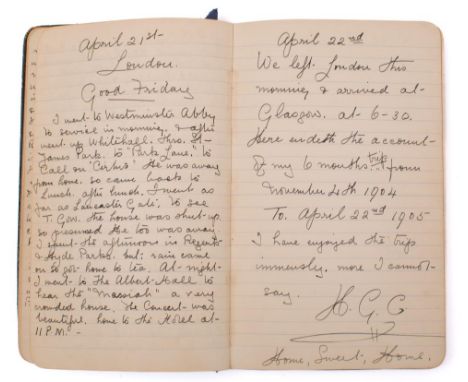 April 21st
London.
Good Friday
I went to Westminster Abbey
to service in morning, & after
went up Whitehall. thro. St-
James Park. to "Park Lane, to
call on "Certus" He was away
from home. so came back to
Lunch. after lunch. I went as
far as Lancaster Gate. to see
T. Gow. the house was shut-up.
so presumed he too was away.
I spent the afternoon in Regents
& Hyde Parks. but, rain came
on so got home to tea. At-night-
I went to the Albert-Hall to
hear the "Messiah" a very
crowded house. the Concert-was
beautiful. home to the Hotel at-
11 P.M. -
April 22nd
We left London this
morning & arrived at-
Glasgow. at- 6-30.
Here endeth the account-
of my 6 months trip from
November 4th 1904
To. April 22nd 1905
I have enjoyed the trip
immensely. more I cannot-
say.
H. G. C
Home, Sweet, Home.